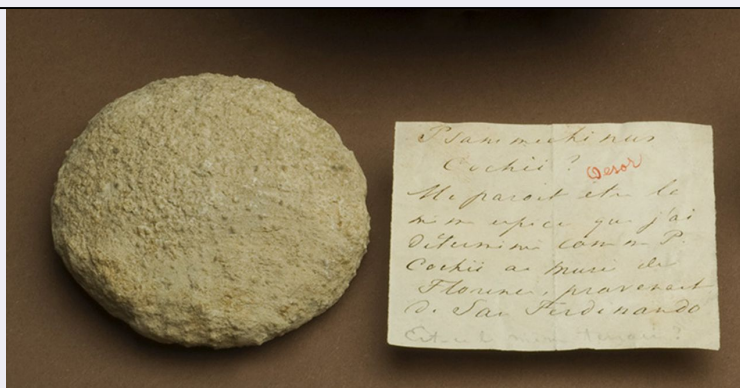 Psammechinus
Cochii ? Desor
Me parait etre le
mem espece que j'ai
détérminé comm P
Cochii au musé de
Florence, provenant
de San Ferdinando
Est-ce le même terrain ?